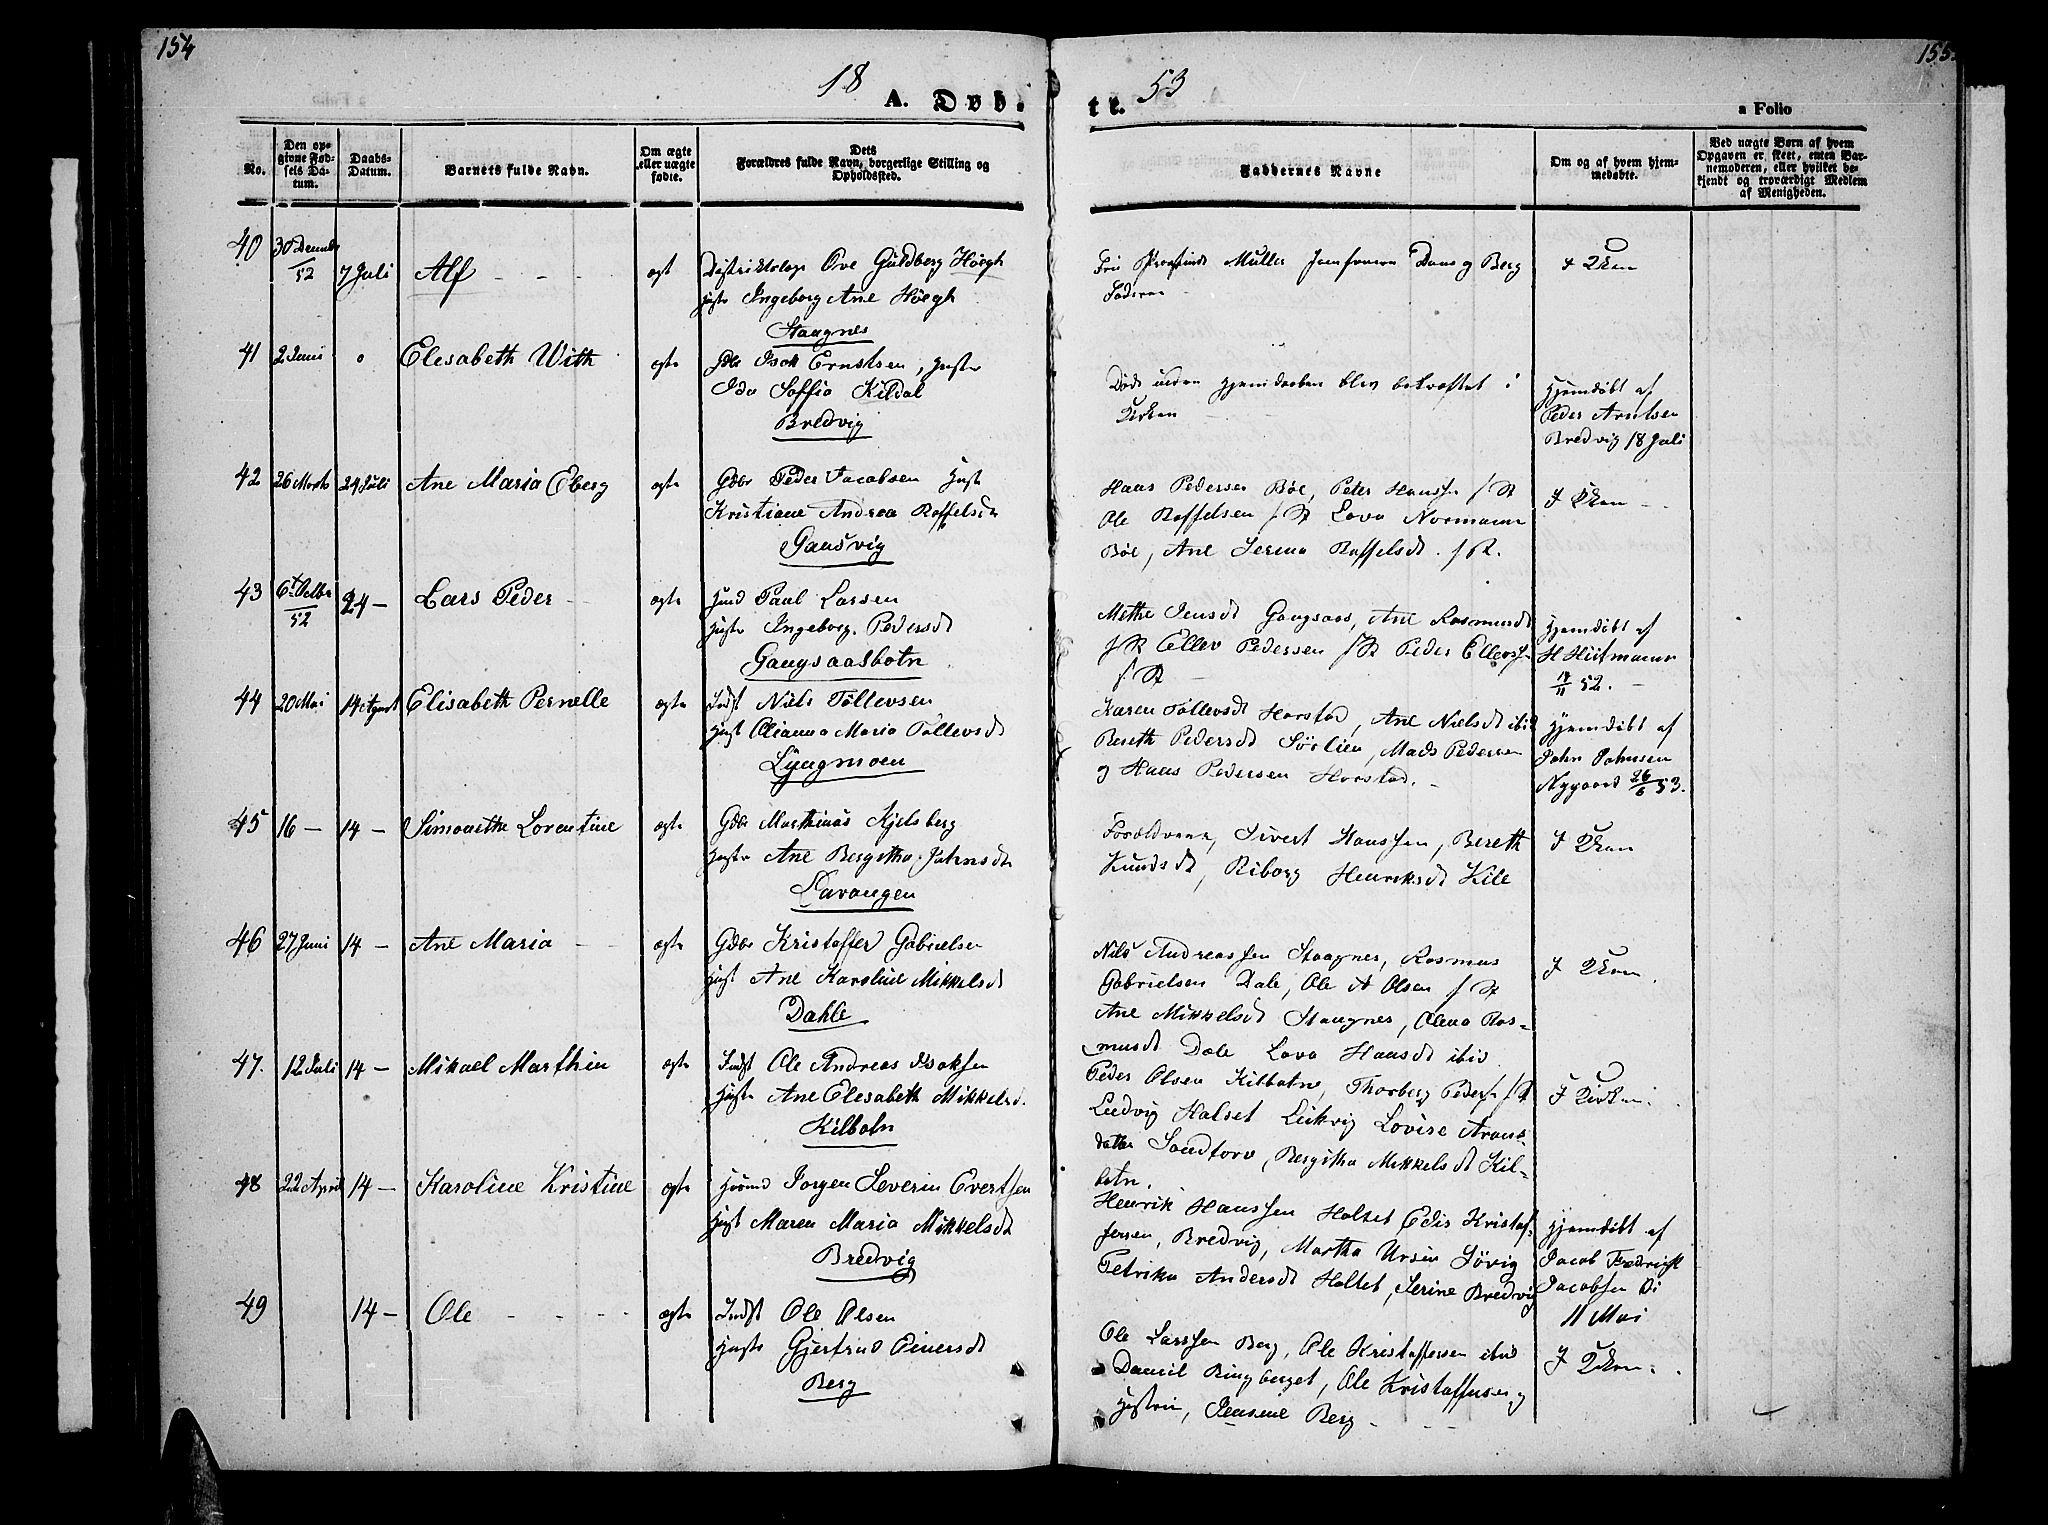 154
155
18
53
A. Døb
te.
a Folio
No.
Den op-
givne Fød-
sels Da-
tum.
Daabs-
Datum.
Barnets fulde Navn.
Om ægte
eller uægte
fødte.
Dets
Forældres fulde Navn, borgerlige Stilling og
Opholdssted.
Faddernes Navne
Om og af hvem hjem-
medøbte.
Ved uægte Børn af hvem
Opgaven er skeet, enten Bar-
nemoderen, eller hvilket be-
kjendt og troværdigt Medlem
af Menigheden.
40
52
7 Juli
Alf
ægt
Ove Guldberg Høegh
Ingeborg Ane Høegh
Staagnes
Müller Jomfruerne Daae og Berg
Faderen
I
41
2 Juni
Elesabeth With
ægte
Gdbr Isak Ernstsen, Hustr
Ida Soffia Kildal
Bredvig
Døde inden Hjemdaaben blev bekræftet i
Kirken
Hjemdøbt af
Peder Arntsen
Bredvig 18 Juli
42
26 Marts
24 Juli
Ane Maria Eberg
ægte
Gdbr Peder Jacobsen Hust
Kristiane Andrea Roffelsdt
Gausvig
Hans Pedersen Bøe, Peter Hanssen f St
Ole Roffelsen f St Lova Normann
Bøe, Ane Serina Roffelsdt. f St.
I Kirken
43
52
24 –
Lars Peder
ægte
Huusmd Paul Larsen
Hustr Ingeborg Pedersdt
Gangsaasbotn
Methe Jensdt Gangsaas, Ane Rasmusdt
f St Ellev Pedersen f St Peder Ellevs
f St
Hjemdøbt af
H Hiitmann
52.
44
20 Mai
14 August
Elisabeth Pernelle
ægte
Indst Niels Tøllevsen
Hust Olianna Maria Tøllevsdt
Lyngmoen
Karen Tøllevsdt Harstad, Ane Nielsdt ibid
Bereth Pedersdt Sørlien, Mads Pedersen
og Hans Pedersen Harstad.
Hjemdøbt af
John Johnsen
Nygaard 26/6 53.
45
16 –
14 –
Simonethe Lorentine
ægte
Gdbr Marthinus Kjelsberg
Hustr Ane Bergitha Johnsdt
Lavangen
Forældrene, Sivert Hanssen, Bereth
Knudsdt, Riborg Henriksdt Kile
I Kirken
46
27 Juni
14 –
Ane Maria
ægte
Gdbr Kristoffer Gabrielsen
Hust Ane Karoline Mikkelsdt
Dahle
Nils Andreassen Staagnes, Rasmus
Gabrielsen Dale, Ole A Olsen f St
Ane Mikkelsdt Stangnes, Olena Ras-
musdt Dale Lova Hansdt ibid
I Kirken
47.
12 Juli
14 –
Mikael Marthin
ægte
Indst Ole Andreas Isaksen
Hustr Ane Elesabeth Mikkelsd.
Kilbotn
Peder Olsen Kilbotn, Thorberg Peders f St
Ludvig Halset Leikvig Lovise Arons
datter Sandtorv, Bergitha Mikkelsdt Kil-
botn.
I Kirken
48
22 April
14 –
Karoline Kristine
ægte
Huusmd Jørgen Severin Evertsen
Hust Maren Maria Mikkelsdt
Bredvig
Henrik Hanssen Haltet, Edis Kristof-
fersen, Bredvig, Martha Ursin Søvig
Petrika Andersdt Haltet, Serine Bredvig
Hjemdøbt af
Jacob Fredrick
Jacobsen
11 Mai
49
14 –
Ole
ægte
Indst Ole Olsen
Hustr Gjertrud Einersdt
Berg
Ole Larssen Berg, Ole Kristoffersen ibid
Daniel Ringberget, Ole Kristoffersen og
Hustru, Jensine Berg
I Kirken